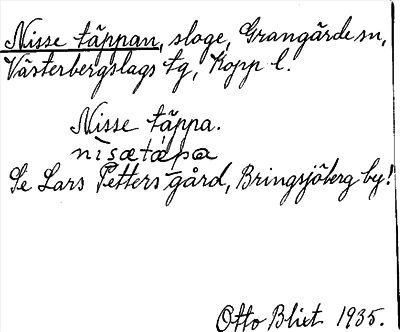 Nisse täppan, sloge, Grangärde sn,
Västerbergslags tg, Kopp l.
Nisse täppa.
nìsætàpa
Se Lars Petters-gård, Bringsjöberg by!
Otto Blixt 1935.